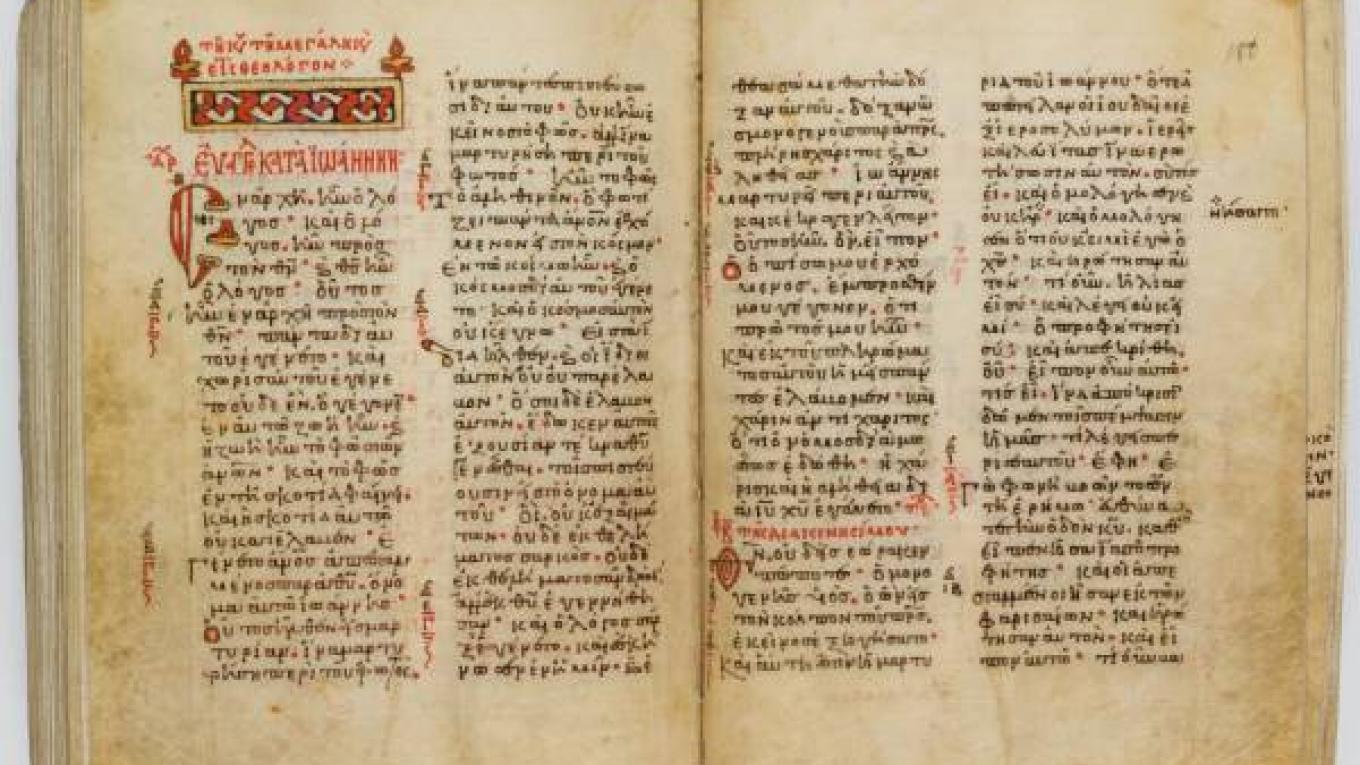 ΕΥΑΓΓ ΚΑΤΑ ΙΩΑΝΝΗΝ
Ἐν ἀρχῆ ἦν ὁ λό
γος· καὶ ὁ λό
γος ἦν πρὸς
τὸν θν· καὶ θς ἦν
ὁ λόγος· οὗτος
ἦν ἐν ἀρχῆ πρὸς τὸν
θν· πάντα δι αὐ
τοῦ ἐγένετο· καὶ
χωρὶς αὐτοῦ ἐγένε
το οὐδὲ ἕν. ὃ γέγονεν·
ἐν αὐτῶ ζωὴ ἦν· καὶ
ἡ ζωὴ ἦν τὸ φῶς τῶν
ἀνων· καὶ τὸ φῶς
ἐν τῆ σκοτία φαίνει·
καὶ ἡ σκοτία αὐτὸ
οὐ κατέλαβεν· ἐ
γένετο ἄνος ἀπεσταλ
μένος παρὰ θυ· ὄνο
μα αὐτῶ ἰωάννης·
οὗτος ἦλθεν εἰς μαρ
τυρίαν. ἵνα μαρτυ
ρήση περὶ τοῦ φωτός.
ἵνα πάντες πιστεύσω
σι δι αὐτοῦ· οὐκ ἦν ἐ
κεῖνος τὸ φῶς. ἀλλ ἵνα
μαρτυρήση περὶ τοῦ
φωτός· ἦν τὸ φῶς
τὸ ἀληθινόν. ὃ φωτί
ζει πάντα ἄνον ἐρχό
μενον εἰς τὸν κόσμον·
ἐν τῶ κόσμω ἦν· καὶ ὁ
κόσμος δι αὐτοῦ ἐγένε
το· καὶ ὁ κόσμος αὐτὸν
οὐκ ἔγνω· εἰς τὰ ἴ
δια ἦλθεν. καὶ οἱ ἴδιοι
αὐτὸν οὐ παρέλα
βον· ὅσοι δὲ ἔλαβον
αὐτόν. ἔδωκεν αὐτοῖς
ἐξουσίαν τέκνα θυ
γενέσθαι. τοῖς πιστεύ
ουσιν εἰς τὸ ὄνομα αὐ
τοῦ· οἳ οὐκ ἐξ αἱμά
των. οὐδὲ ἐκ θελή
ματος σαρκός. οὐδὲ
ἐκ θελήματος ἀνδρός.
ἀλλ ἐκ θυ ἐγεννήθη
σαν· καὶ ὁ λόγος σὰρ
ξ ἐγένετο· καὶ ἐσκή
νωσεν ἐν ἡμῖν· καὶ ἐ
θεασάμεθα τὴν δό
ξαν αὐτοῦ. δόξαν ὡς
μονογενοῦς παρὰ πρς.
πλήρης χάριτος καὶ ἀ
ληθείας· ἰωάννης
μαρτυρεῖ περὶ αὐτοῦ.
καὶ κέκραγε λέγων·
οὗτος ἦν. ὃν εἶπον·
ὁ ὀπίσω μου ἐρχό
μενος. ἔμπροσθέν
μου γέγονεν. ὅτι
πρῶτός μου ἦν·
καὶ ἐκ τοῦ πληρώμα
τος αὐτοῦ ἡμεῖς πάν
τες ἐλάβομεν· καὶ
χάριν ἀντὶ χάριτος·
ὅτι ὁ νόμος διὰ μω
σέως ἐδόθη· ἡ χά
ρις καὶ ἡ ἀλήθεια δι
ὰ ιυ χυ ἐγένετο·
τῆ β τῆς διακαινησίμου
Θν. οὐδεὶς ἑώρακεν
πώποτε· ὁ μονο
γενὴς υς. ὁ ὢν εἰς
τὸν κόλπον τοῦ πρς.
ἐκεῖνος ἐξηγήσατο·
καὶ αὕτη ἐστὶν ἡ μαρτυ
ρία τοῦ ἰωάννου· ὅτε ἀ
πέστειλαν οἱ ἰουδαῖοι ἐ
ξ ἱεροσολύμων. ἱερεῖς
καὶ λευίτας ἵνα ἐρω
τήσωσιν αὐτόν. σὺ τίς
εἶ· καὶ ὡμολόγησε καὶ
οὐκ ἠρ· καὶ ὡμολόγη
σεν ὅτι οὐκ εἰμὶ ἐγὼ ὁ
χς· καὶ ἠρώτησαν αὐ
τόν· τί οὖν. ἠλίας
εἶ σύ· καὶ λέγει οὐκ εἰ
μί· ὁ προφήτης εἶ
σύ· καὶ ἀπεκρίθη.
οὔ· εἶπον οὖν αὐτῶ·
τίς εἶ. ἵνα ἀπόκρισιν
δῶμεν τοῖς πέμψασιν
ἡμᾶς· τί λέγεις πε
ρὶ σεαυτοῦ· ἔφη· ἐ
γὼ φωνὴ βοῶντος ἐν
τῆ ἐρήμω. εὐθύνατε
τὴν ὁδὸν κυ. καθὼς
εἶπεν ἡσαΐας ὁ προ
φήτης· καὶ οἱ ἀπε
σταλμένοι ἦσαν ἐκ τῶν
φαρισαίων· καὶ ἠρώ
τησαν αὐτόν. καὶ εἶ
πον αὐτῶ· τί οὖν βα